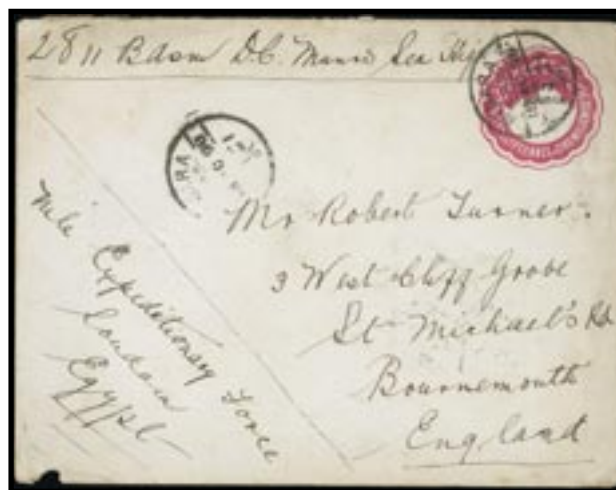 2811 Bdsm D.C. Munro Sea Hrs
Mr Robert Turner.
3 West Cliff Grove
St Michael's Rd
Bournemouth
England
Nile Expeditionary Force
Soudan
Egypt